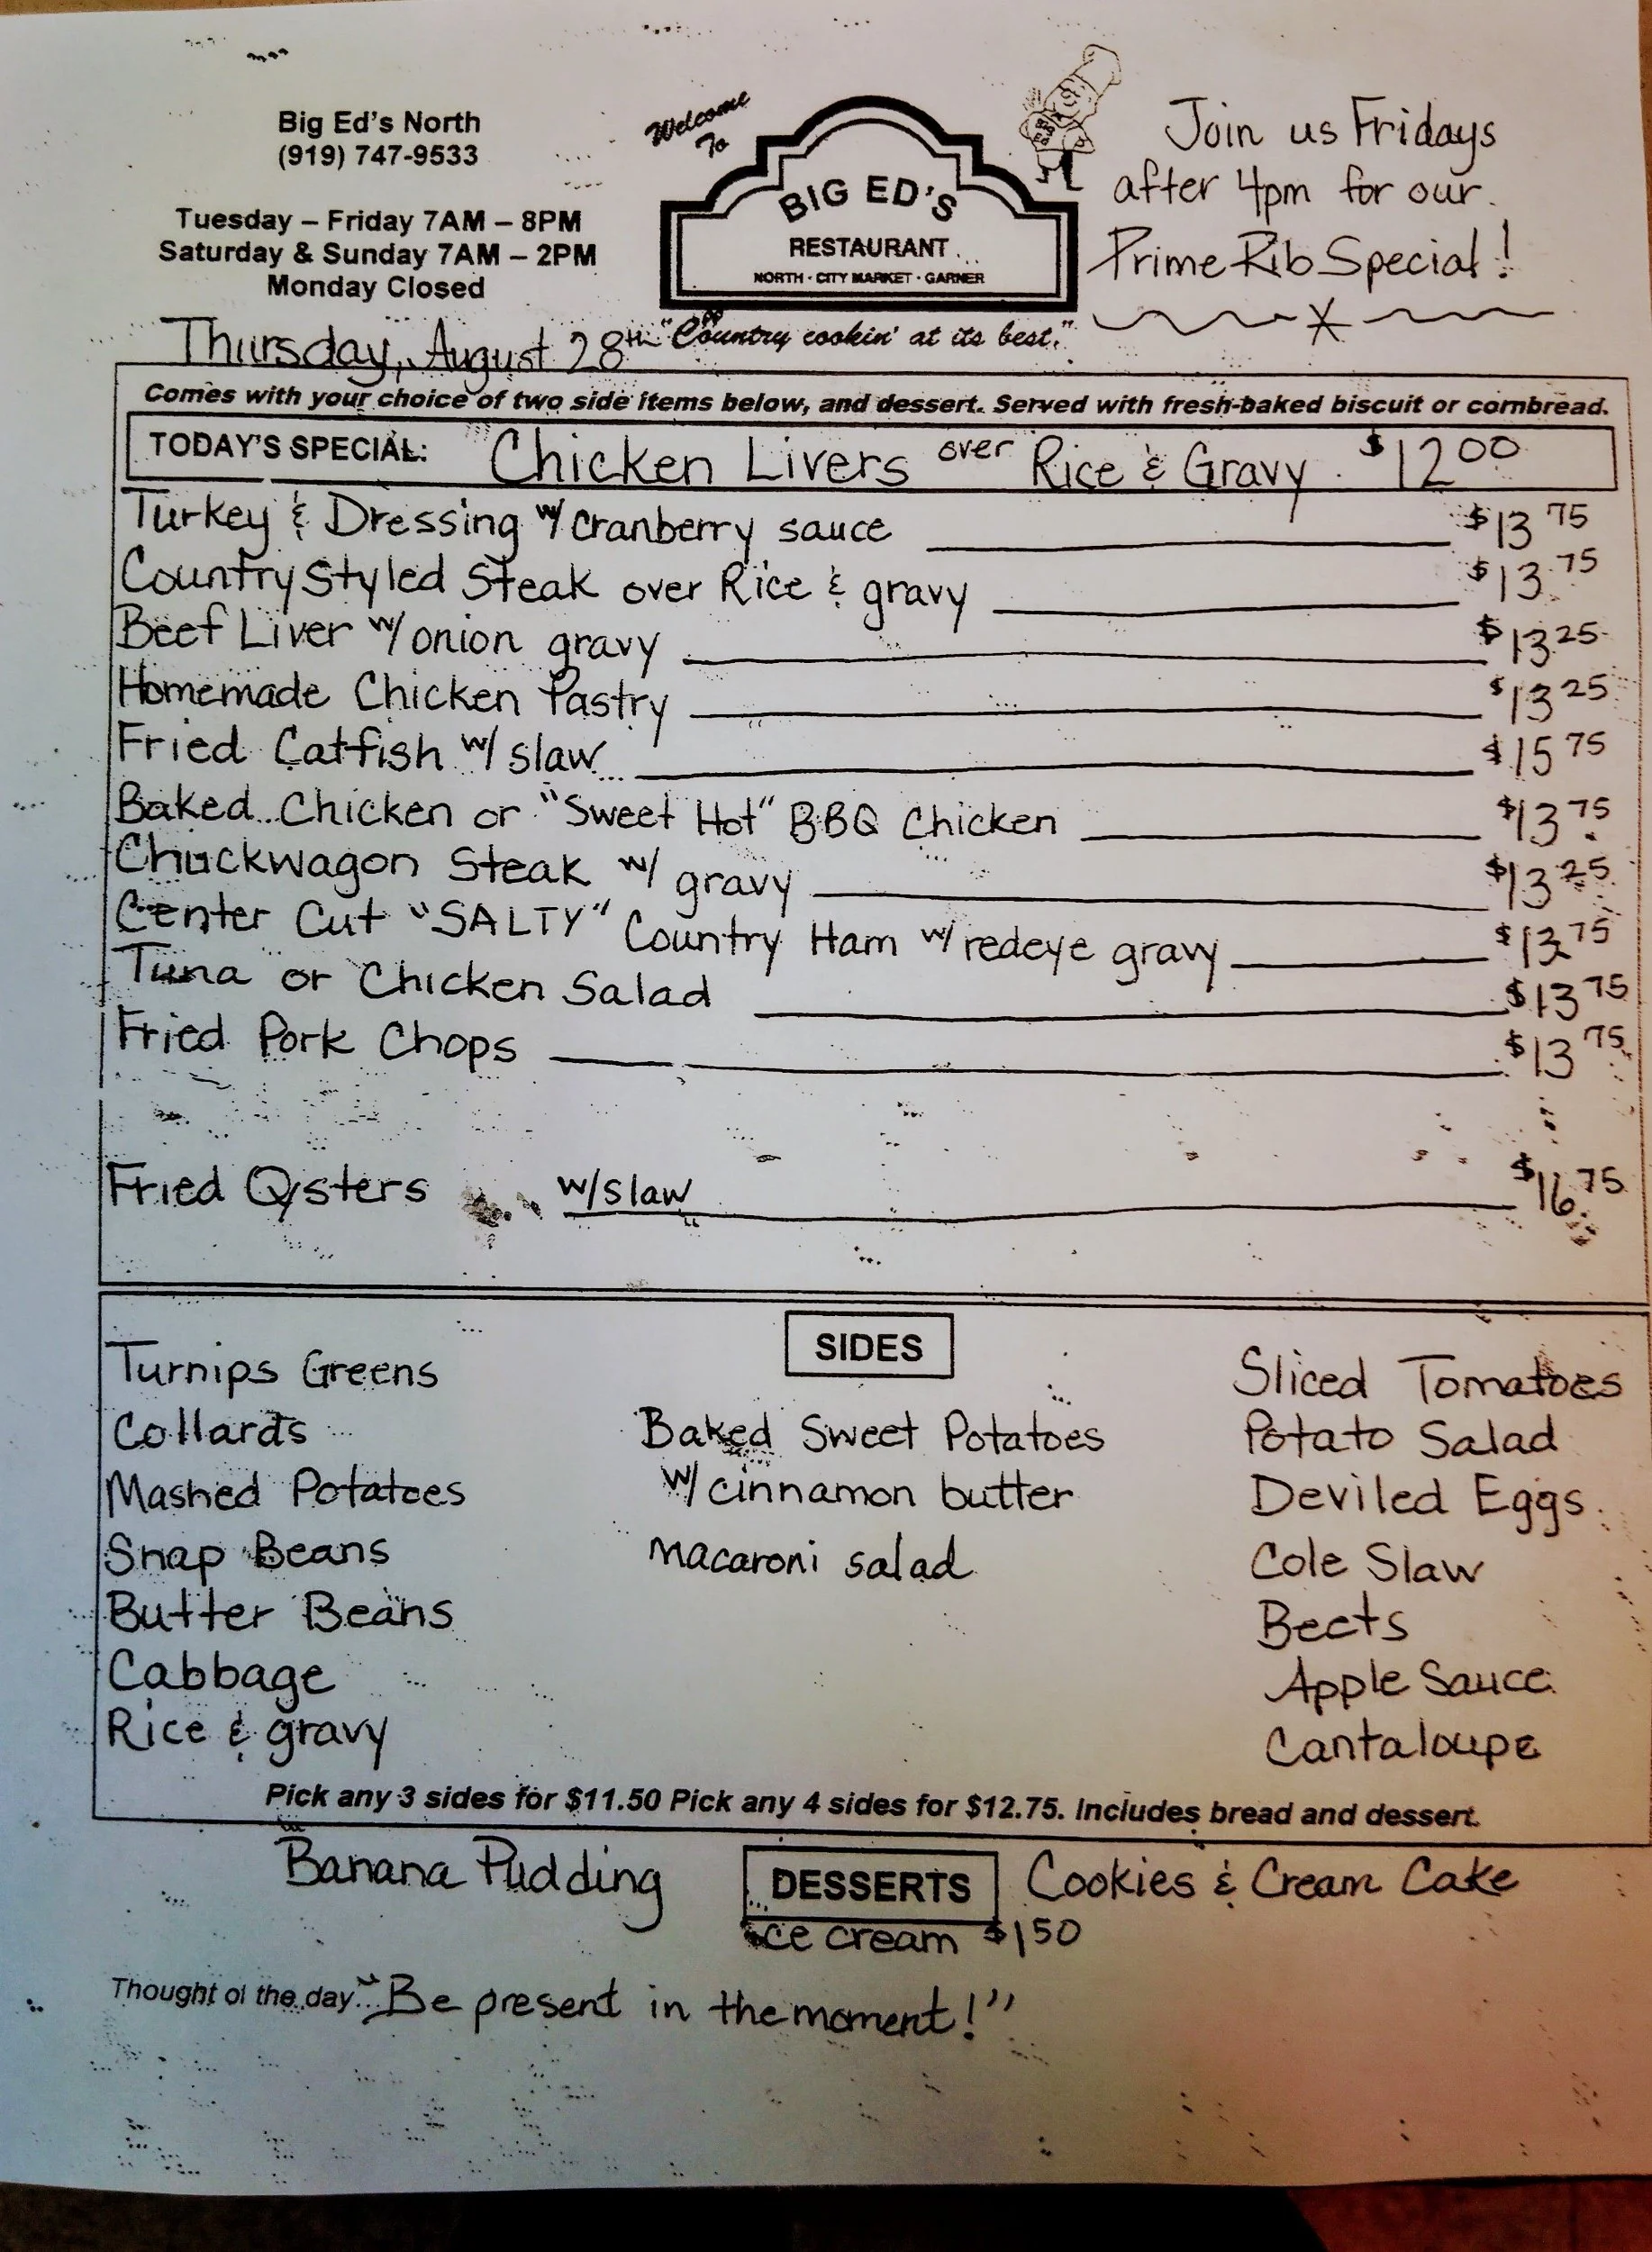 Big Ed's North
(919) 747-9533
Tuesday – Friday 7AM – 8PM
Saturday & Sunday 7AM – 2PM
Monday Closed
Welcome
To
BIG ED'S
RESTAURANT
NORTH · CITY MARKET · GARNER
"Country cookin' at its best."
Join us Fridays
after 4pm for our
Prime Rib Special!
Thursday, August 28th
Comes with your choice of two side items below, and dessert. Served with fresh-baked biscuit or cornbread.
TODAY'S SPECIAL: Chicken Livers over Rice & Gravy $12 00
Turkey & Dressing w/ cranberry sauce $13 75
Country Styled Steak over Rice & gravy $13 75
Beef Liver w/ onion gravy $13 25
Homemade Chicken Pastry $13 25
Fried Catfish w/ slaw $15 75
Baked Chicken or "Sweet Hot" BBQ Chicken $13 75
Chuckwagon Steak w/ gravy $13 25
Center Cut "SALTY" Country Ham w/ redeye gravy $13 75
Tuna or Chicken Salad $13 75
Fried Pork Chops $13 75
Fried Oysters w/slaw $16 75
SIDES
Turnips Greens
Collards
Mashed Potatoes
Snap Beans
Butter Beans
Cabbage
Rice & gravy
Baked Sweet Potatoes
w/ cinnamon butter
macaroni salad
Sliced Tomatoes
Potato Salad
Deviled Eggs
Cole Slaw
Beets
Apple Sauce
Cantaloupe
Pick any 3 sides for $11.50 Pick any 4 sides for $12.75. Includes bread and dessert.
Banana Pudding DESSERTS Cookies & Cream Cake
Ice cream $1 50
Thought of the day... "Be present in the moment!"